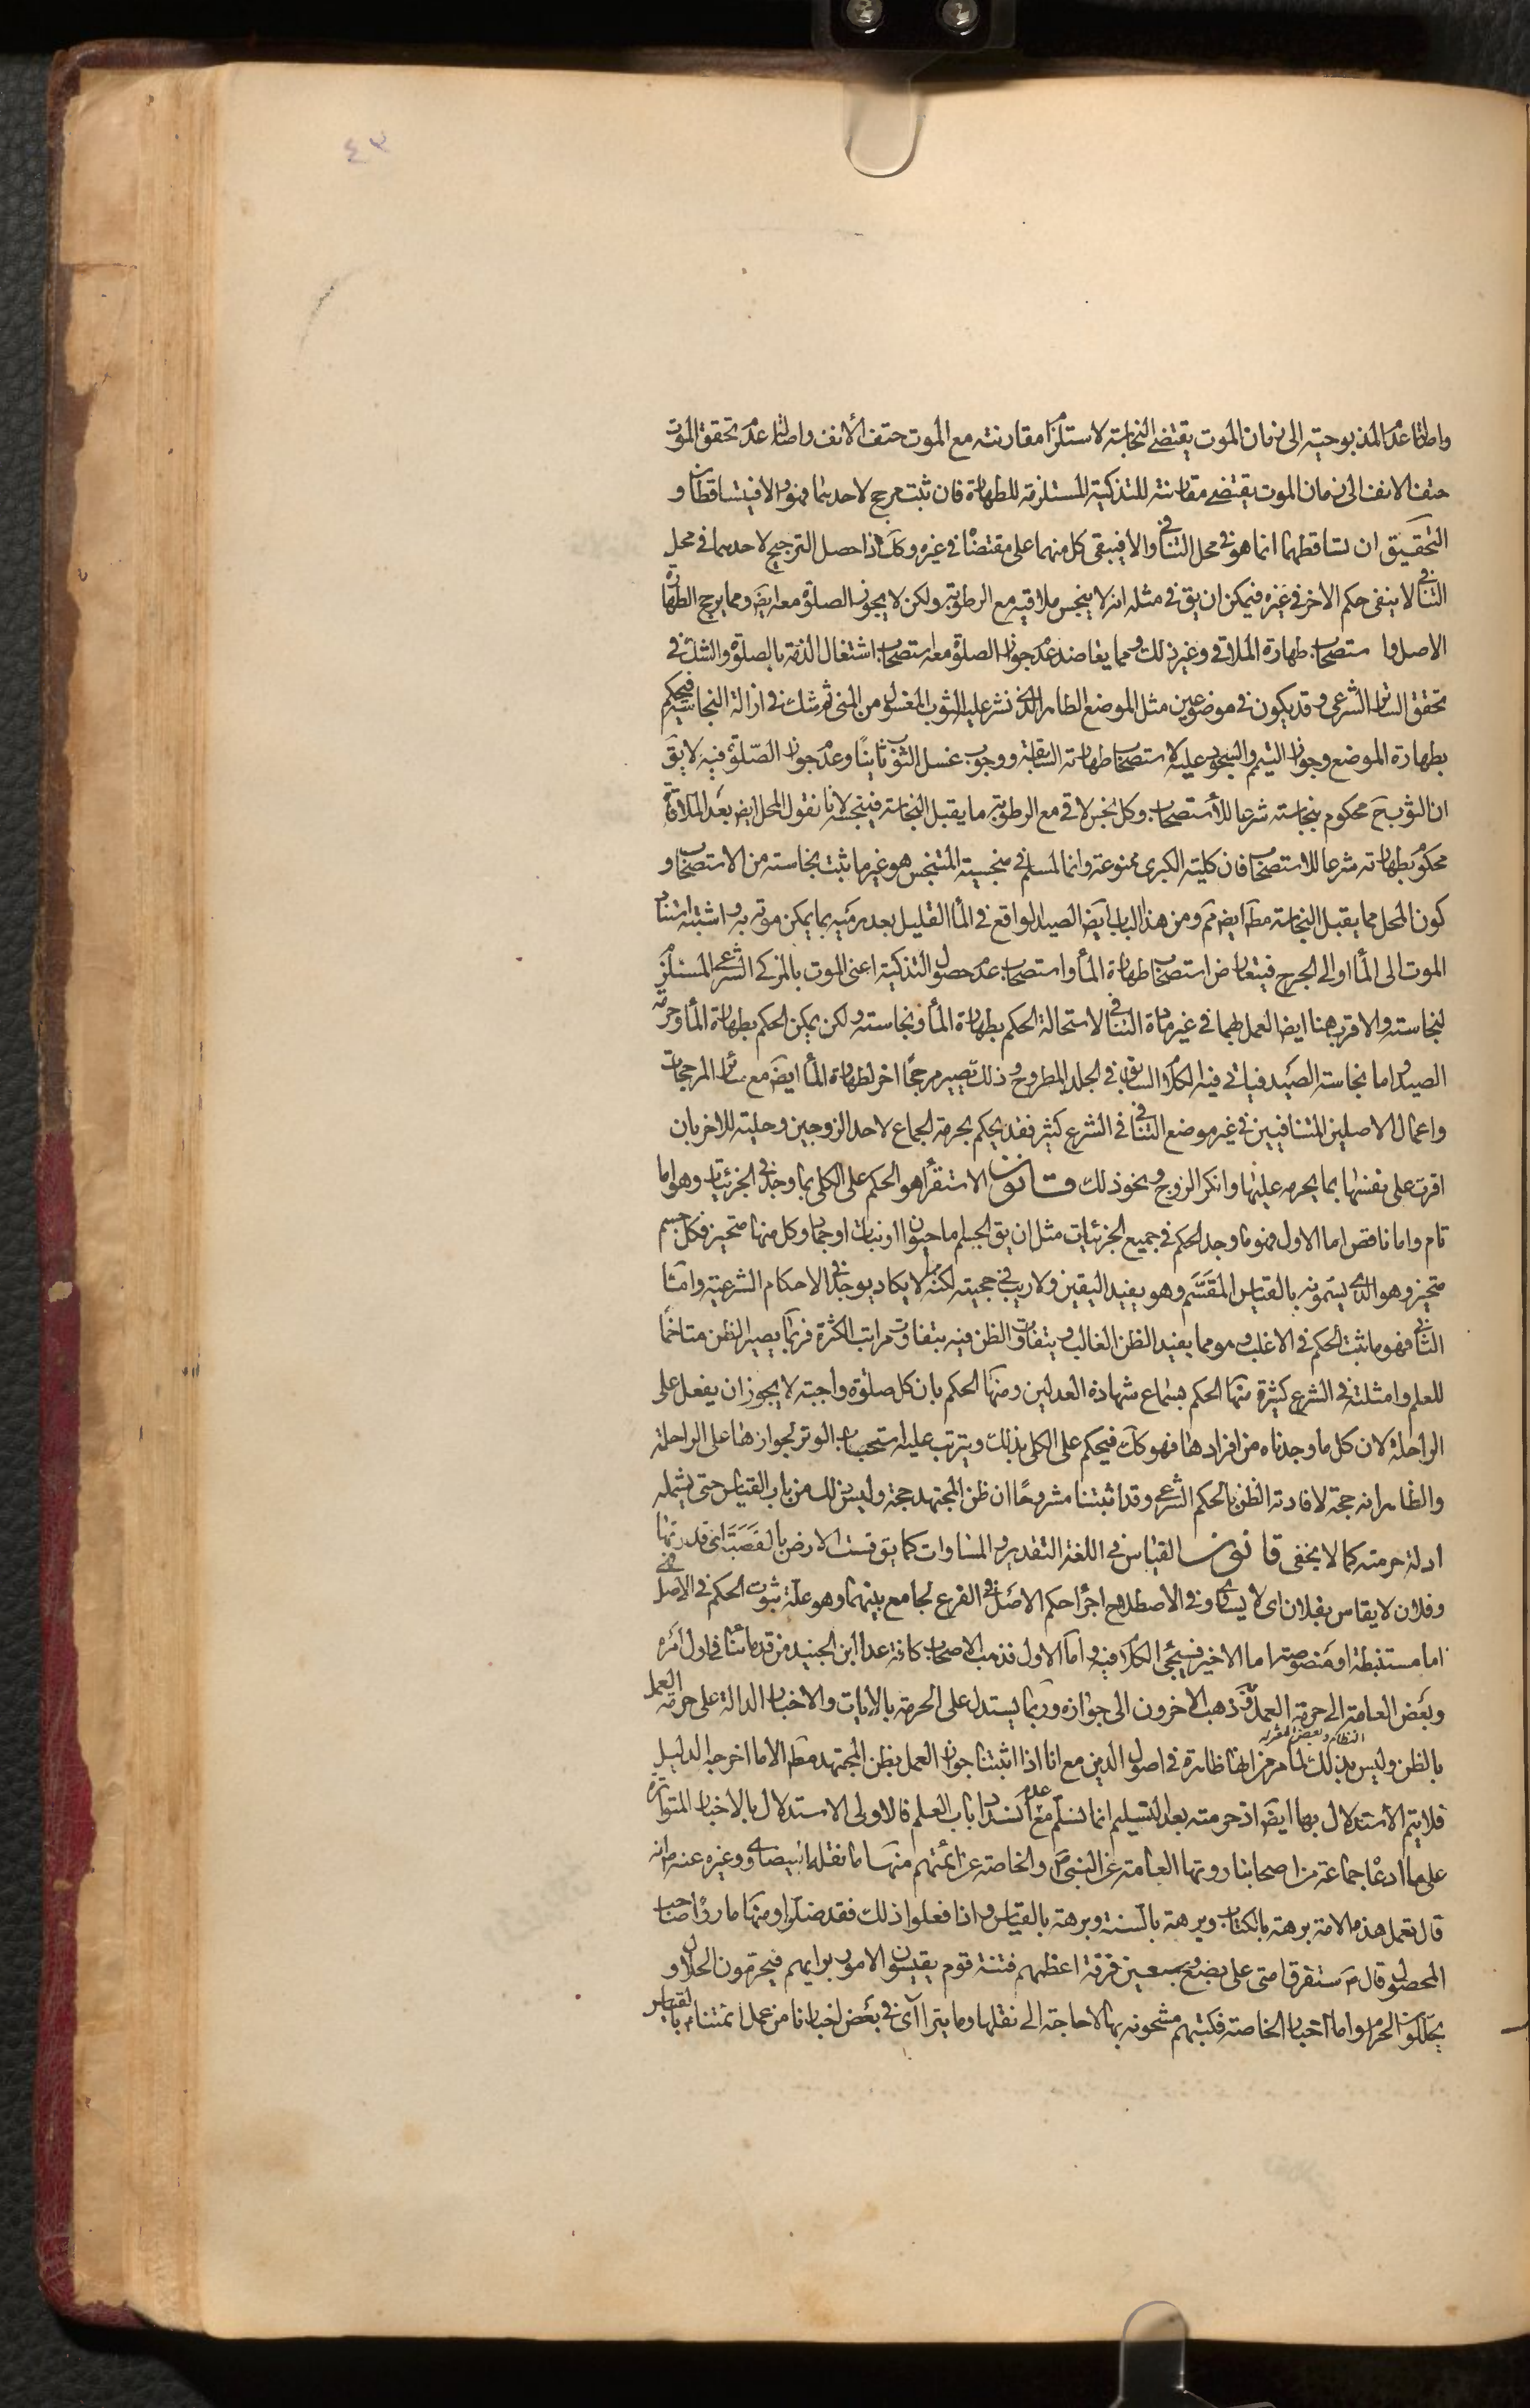 ٤٣
واصالة عدم المذبوحية الى زمان الموت يقتضى النجاسة لاستلزامها مقارنته مع الموت حتف الأنف واصالة عدم تحقق الموت
حتف الانف الى زمان الموت يقتضى مقارنته للتذكية المستلزمة للطهارة فان ثبت مرجح لاحدهما فهو والا فيتساقطان و
التحقيق ان تساقطهما انما هو فى محل التنافى والا فيبقى كل منهما على مقتضاه فى غيره وكك اذا حصل الترجيح لاحدهما فى محل
التنافى لا ينفى حكم الاخر فى غيره فيمكن ان يق فى مثله انه لا ينجس ملاقيه مع الرطوبة ولكن لا يجوز الصلوة معه ايض ومما يرجح الطهارة
الاصل واستصحاب طهارة الملاقى وغير ذلك ومما يعاضد عدم جواز الصلوة معه استصحاب اشتغال الذمة بالصلوة والشك فى
تحقق الساتر الشرعى وقد يكون فى موضوعين مثل الموضع الطاهر الذى نشر عليه الثوب المغسول من المنى ثم شك فى ازالة النجاسة فيحكم
بطهارة الموضع وجواز التيمم والسجود عليه لاستصحاب طهارته السابقة ووجوب غسل الثوب ثانيًا وعدم جواز الصّلوة فيه لا يق
ان الثوب ح محكوم بنجاسته شرعا للأستصحاب وكل نجس لاقى مع الرطوبة ما يقبل النجاسة فينجسه لانا نقول المحل ايض بعد الملاقاة
محكوم بطهارته شرعا للاستصحاب فان كلية الكبرى ممنوعة وانما المسلم فى منجسية المتنجس هو غير ما ثبت نجاسته من الاستصحاب و
كون المحل مما يقبل النجاسة مط ايض مم ومن هذا الباب ايض الصيد الواقع فى المأ القليل بعد رميه بما يمكن موته به واشتبه استناد
الموت الى المأ او الى الجرح فيتعارض استصحاب طهارة المأ واستصحاب عدم حصول التذكية اعنى الموت بالمذكى الشرعى المستلزم
لنجاسته والاقرب هنا ايضا العمل بهما فى غير مادة التنافى لاستحالة الحكم بطهارة المأ ونجاسته ولكن يمكن الحكم بطهارة المأ وحرمة
الصيد واما نجاسة الصيد فياتى فيه الكلام السابق فى الجلد المطروح وذلك يصير مرجحًا اخر لطهارة المأ ايض مع سائر المرجحات
واعمال الاصلين المتنافيين فى غير موضع التنافى فى الشرع كثير فقد يحكم بحرمة الجماع لاحد الزوجين وحليته للاخر بان
اقرت على نفسها بما يحرمه عليها وانكر الزوج ونحو ذلك قانون الاستقرأ هو الحكم على الكلى بما وجد فى الجزئيات وهو اما
تام واما ناقص اما الاول فهو ما وجد الحكم فى جميع الجزئيات مثل ان يق الجسم اما حيوان او نبات او جماد وكل منها متحيز فكل جسم
متحيز وهو الذى يسمونه بالقياس المقسَّم وهو يفيد اليقين ولا ريب فى حجيته لكنه لا يكاد يوجد فى الاحكام الشرعية وامّا
الثانى فهو ما ثبت الحكم فى الاغلب وهو مما يفيد الظن الغالب ويتفاوت الظن فيه بتفاوت مراتب الكثرة فربما يصير الظن متاخمًا
للعلم وامثلته فى الشرع كثيرة منها الحكم بسماع شهادة العدلين ومنها الحكم بان كل صلوة واجبة لا يجوز ان يفعل على
الراحلة لان كل ما وجدناه من افرادها فهو كك فيحكم على الكلى بذلك ويترتب عليه استحباب الوتر لجوازها على الراحلة
والظاهر انه حجة لافادته الظن بالحكم الشرعى وقد اثبتنا مشروحًا ان ظن المجتهد حجة وليس ذلك من باب القياس حتى يشمله
ادلة حرمته كما لا يخفى قانون القياس فى اللغة التقدير والمساوات كما يق قست الارض بالقصبة اى قدرتها
وفلان لا يقاس بفلان اى لا يساوى وفى الاصطلاح اجرأ حكم الاصل فى الفرع لجامع بينهما وهو علة ثبوت الحكم فى الاصل فهى
اما مستنبطة او منصوصة اما الاخير فسيجئى الكلام فيه واما الاول فذهب الاصحاب كافة عدا ابن الجنيد من قدمائنا فى اول امره
وبعض العامة الى حرمة العمل به وذهب الاخرون الى جوازه وربما يستدل على الحرمة بالايات والاخبار الدالة على حرمة العمل
النظام وبعض المعتزلة
بالظن وليس بذلك لما مر من انها ظاهرة فى اصول الدين مع انا اذا اثبتنا جواز العمل بظن المجتهد مط الا ما اخرجه الدليل
فلا يتم الأستدلال بها ايض اذ حرمته بعد التسليم انما نسلم مع عدم انسداد باب العلم فالاولى الاستدلال بالاخبار المتواترة
على ما ادعاه جماعة من اصحابنا روتها العامة عن النبى ص والخاصة عن ائمتهم منها ما نقله البيضاوى وغيره عنه ص انه
قال تعمل هذه الامة برهة بالكتاب وبرهة بالسنة وبرهة بالقياس واذا فعلوا ذلك فقد ضلوا ومنها ما رواه صاحب
المحصول قال ص ستفرق امتى على بضع وسبعين فرقة اعظمهم فتنة قوم يقيسون الامور برايهم فيحرمون الحلال و
يحللون الحرام واما اخبار الخاصة فكتبهم مشحونة بها لا حاجة الى نقلها وما يترا آى فى بعض اخبارنا من عمل ائمتنا ع بالقياس